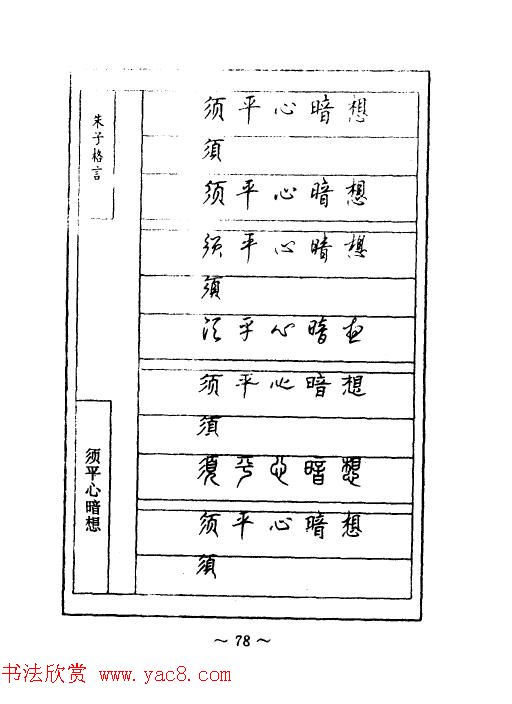 朱子格言
须平心暗想
须平心暗想
須
须平心暗想
须平心暗想
須
须平心暗想
须平心暗想
須
須平心暗想
须平心暗想
須
~ 78 ~
书法欣赏 www.yac8.com